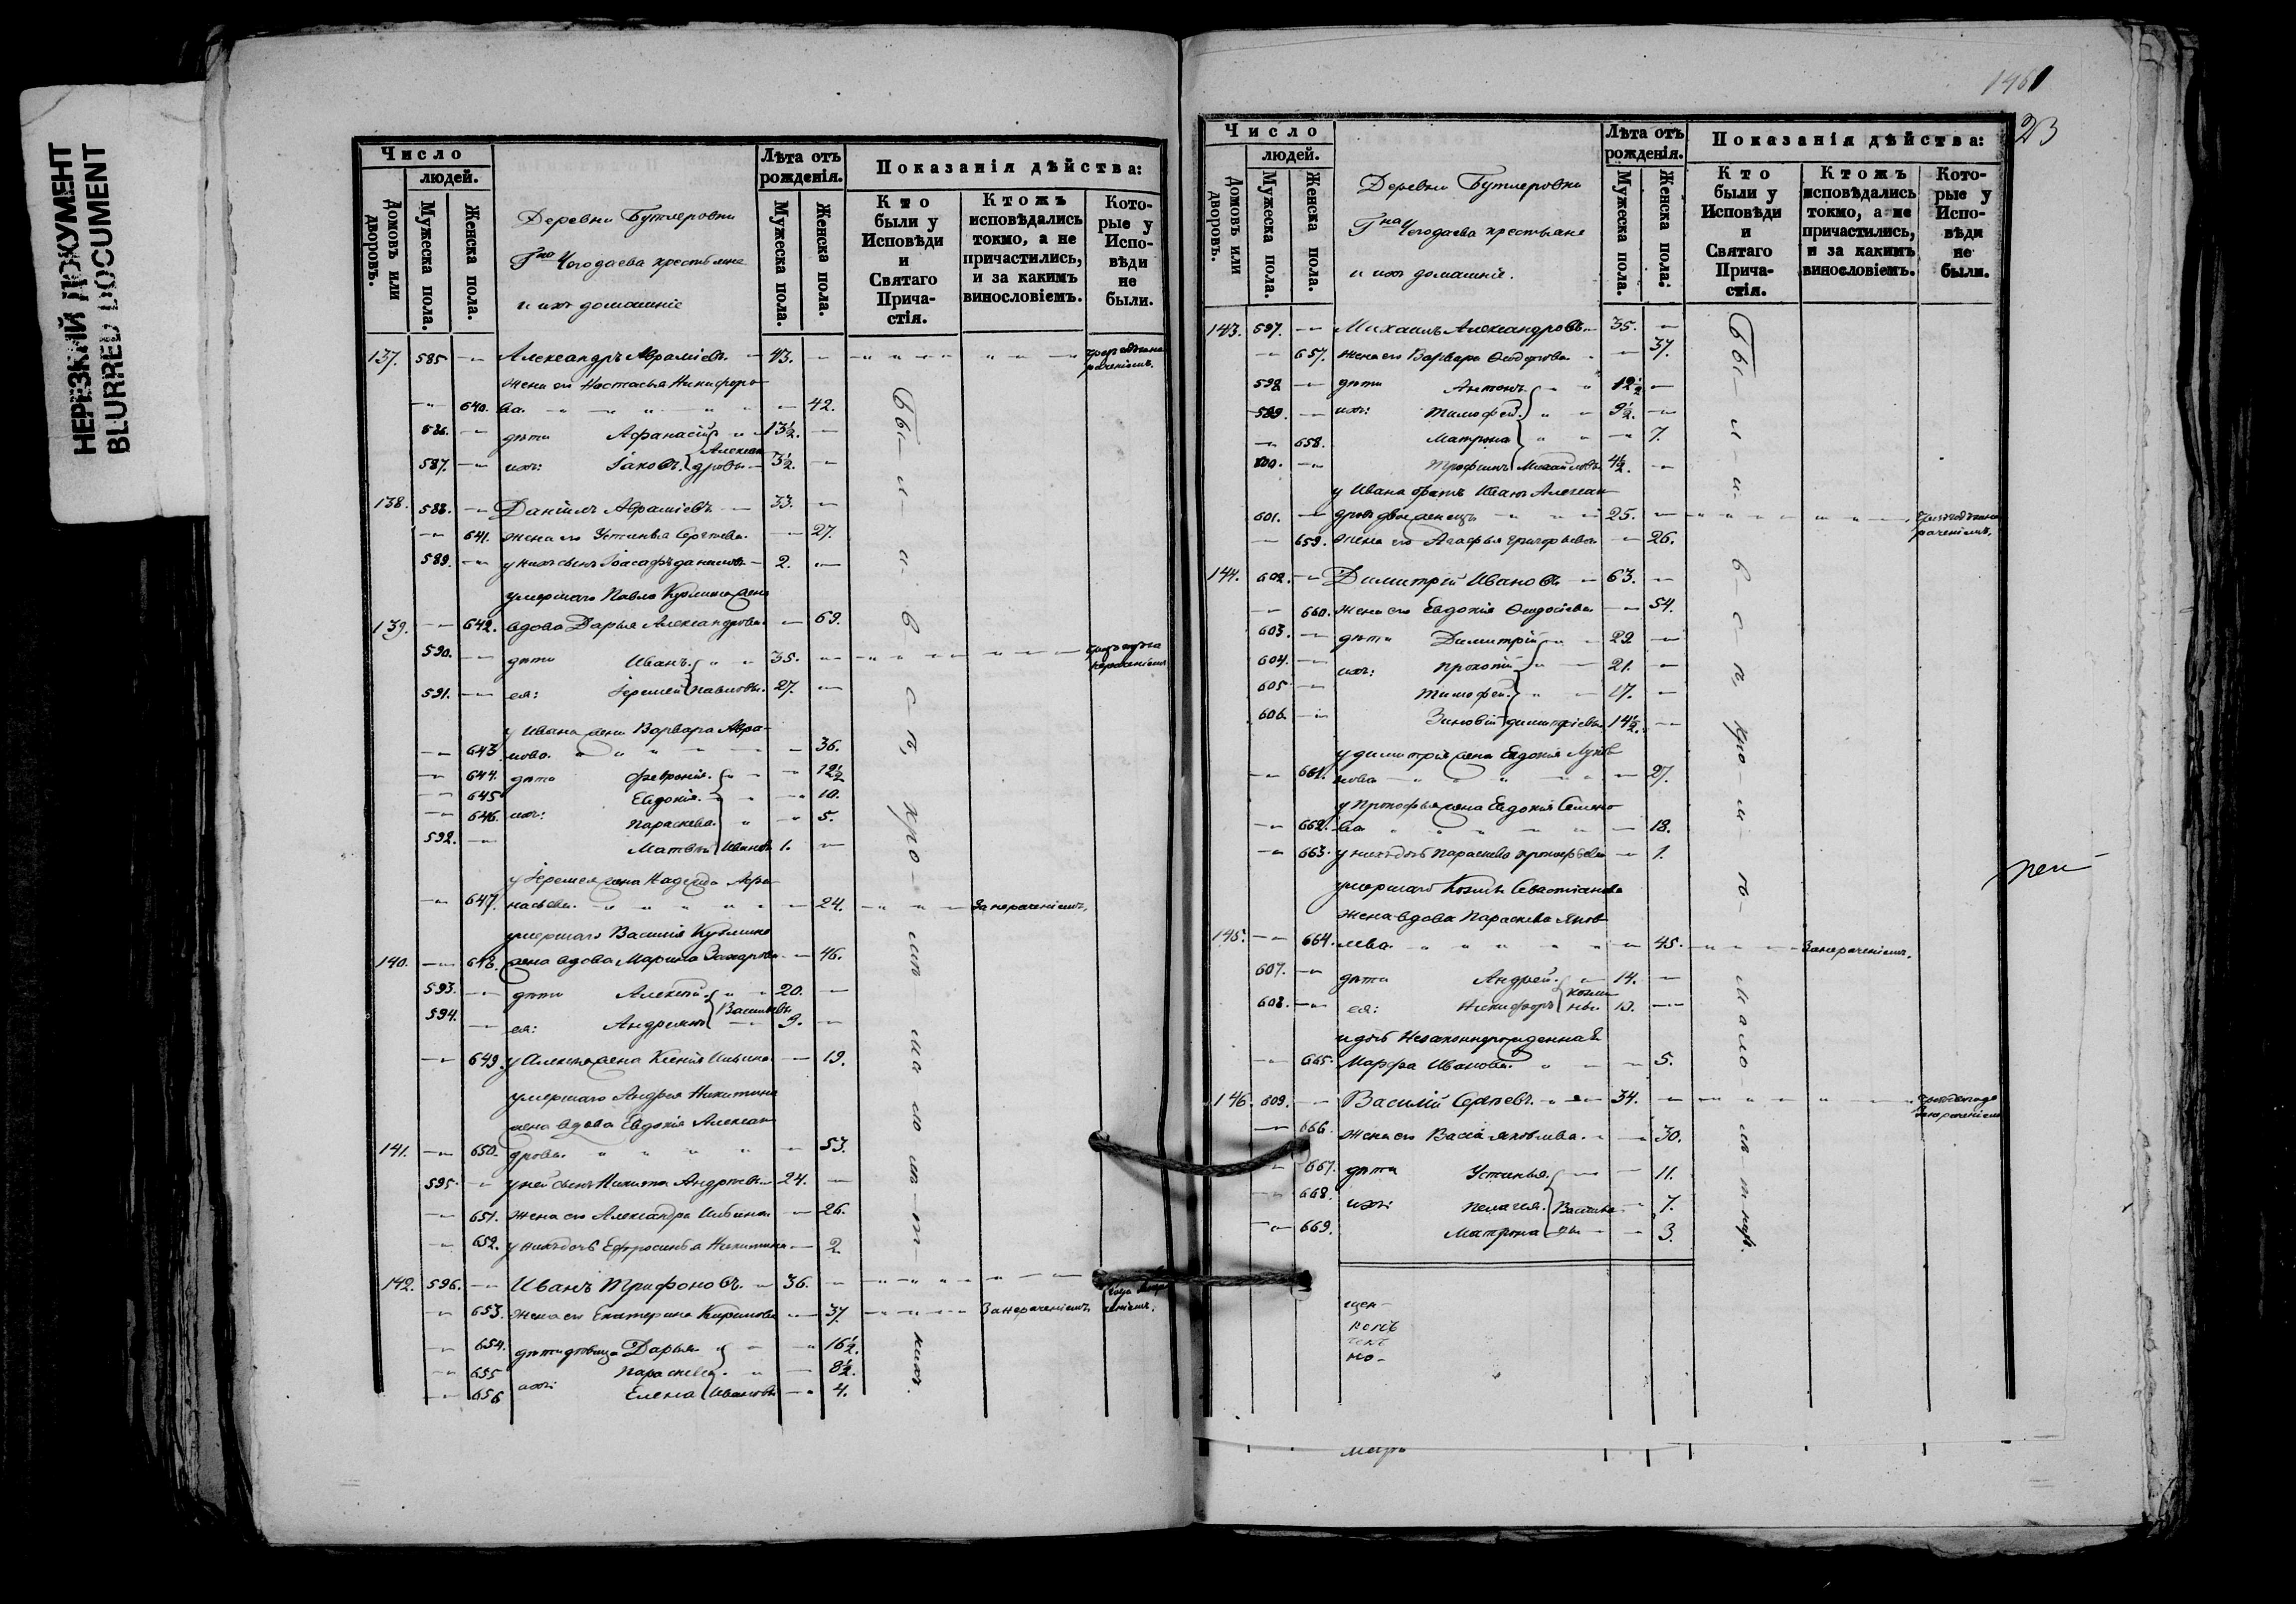 НЕРЕЗКИЙ ДОКУМЕНТ
BLURRED DOCUMENT
Число
людей.
Домовъ или дворовъ.
Мужеска пола.
Женска пола.
Деревни Бутлеровки
Гна Чегодаева крестьяне
и ихъ домашніе
Лѣта отъ рожденія.
Мужеска пола.
Женска пола.
Показанія дѣйства:
Кто были у Исповѣди и Святаго Причастія.
Ктожъ исповѣдались токмо, а не причастились, и за какимъ винословіемъ.
Которые у Исповѣди не были.
137. 585 Александръ Авраміевъ 43.
жена его Настасья Никифоро-
640. ва 42.
586. дѣти Афанасій 13½.
587. ихъ: Іаковъ Александровы 3½.
138. 588. Даніилъ Авраміевъ 33.
641. жена его Устинья Сергѣева 27.
589. у нихъ сынъ Іоасафъ Даниловъ 2.
умершаго Павла Кузмина жена
139. 642. вдова Дарья Александрова 69.
590. дѣти Иванъ 35.
591. ея: Іеремей Павловы. 27.
у Ивана жена Варвара Авра-
643 мова 36.
644. дѣти Февронія 12½
645 Евдокія 10.
646. ихъ: Параскева 5.
592. Матвѣй Ивановы 1.
у Іеремея жена Надежда Афа-
647. насьева 24. За нераченіемъ.
умершаго Василія Кузмина
140. 648. жена вдова Марина Захарова 46.
593. дѣти Алексѣй 20.
594. ея: Андреянъ Васильевы 9.
649. у Алексѣя жена Ксенія Ильина 19.
умершаго Андрея Никитина
жена вдова Евдокія Алексан-
141. 650. дрова 53.
595. у ней сынъ Никита Андреевъ 24.
651. жена его Александра Ильина 26.
652. у нихъ дочь Ефросинья Никитина 2.
142. 596. Иванъ Трифоновъ 36.
653. жена его Екатерина Кирилова 37. За нераченіемъ
654. дѣти дѣвица Дарья 16½.
655 Параскева 8½.
656 ихъ: Елена Ивановы 4.
1461
23
Число
людей.
Домовъ или дворовъ.
Мужеска пола.
Женска пола.
Деревни Бутлеровки
Гна Чегодаева крестьяне
и ихъ домашніе.
Лѣта отъ рожденія.
Мужеска пола.
Женска пола.
Показанія дѣйства:
Кто были у Исповѣди и Святаго Причастія.
Ктожъ исповѣдались токмо, а не причастились, и за какимъ винословіемъ.
Которые у Исповѣди не были.
143. 597. Михаилъ Александровъ 35.
657. жена его Варвара Федорова 37.
598 дѣти Антонъ 12½
599. ихъ: Тимофей 9½.
658. Матрона 7.
600. Трофимъ Михайловы 4½.
601. 25.
659. жена его Агафья Григорьева 26.
144. 602. Димитрій Ивановъ 63.
660. жена его Евдокія Федосіева 54.
603. дѣти Димитрій 22
604. ихъ: Прокопій 21.
605 Тимофей 17.
606. Зиновій Димитріевы 14½.
у Димитрія жена Евдокія Лукья-
661. нова 27.
у Прокофья жена Евдокія Семено-
662. ва 18.
663. у нихъ дочь Параскева Прокофьева 1.
умершаго Козмы Севастіанова
жена вдова Параскева Яков-
145. 664. лева 45. За нераченіемъ.
607. дѣти Андрей 14.
608. ея: Никифоръ Козмины
и дочь Незаконнорожденная
665. Марфа Иванова 5.
146. 609. Василій Сергѣевъ 34.
666. жена его Васса Яковлева 30.
667. дѣти Устинья 11.
668. ихъ: Пелагея 7.
669. Матрона Васильевы 3.